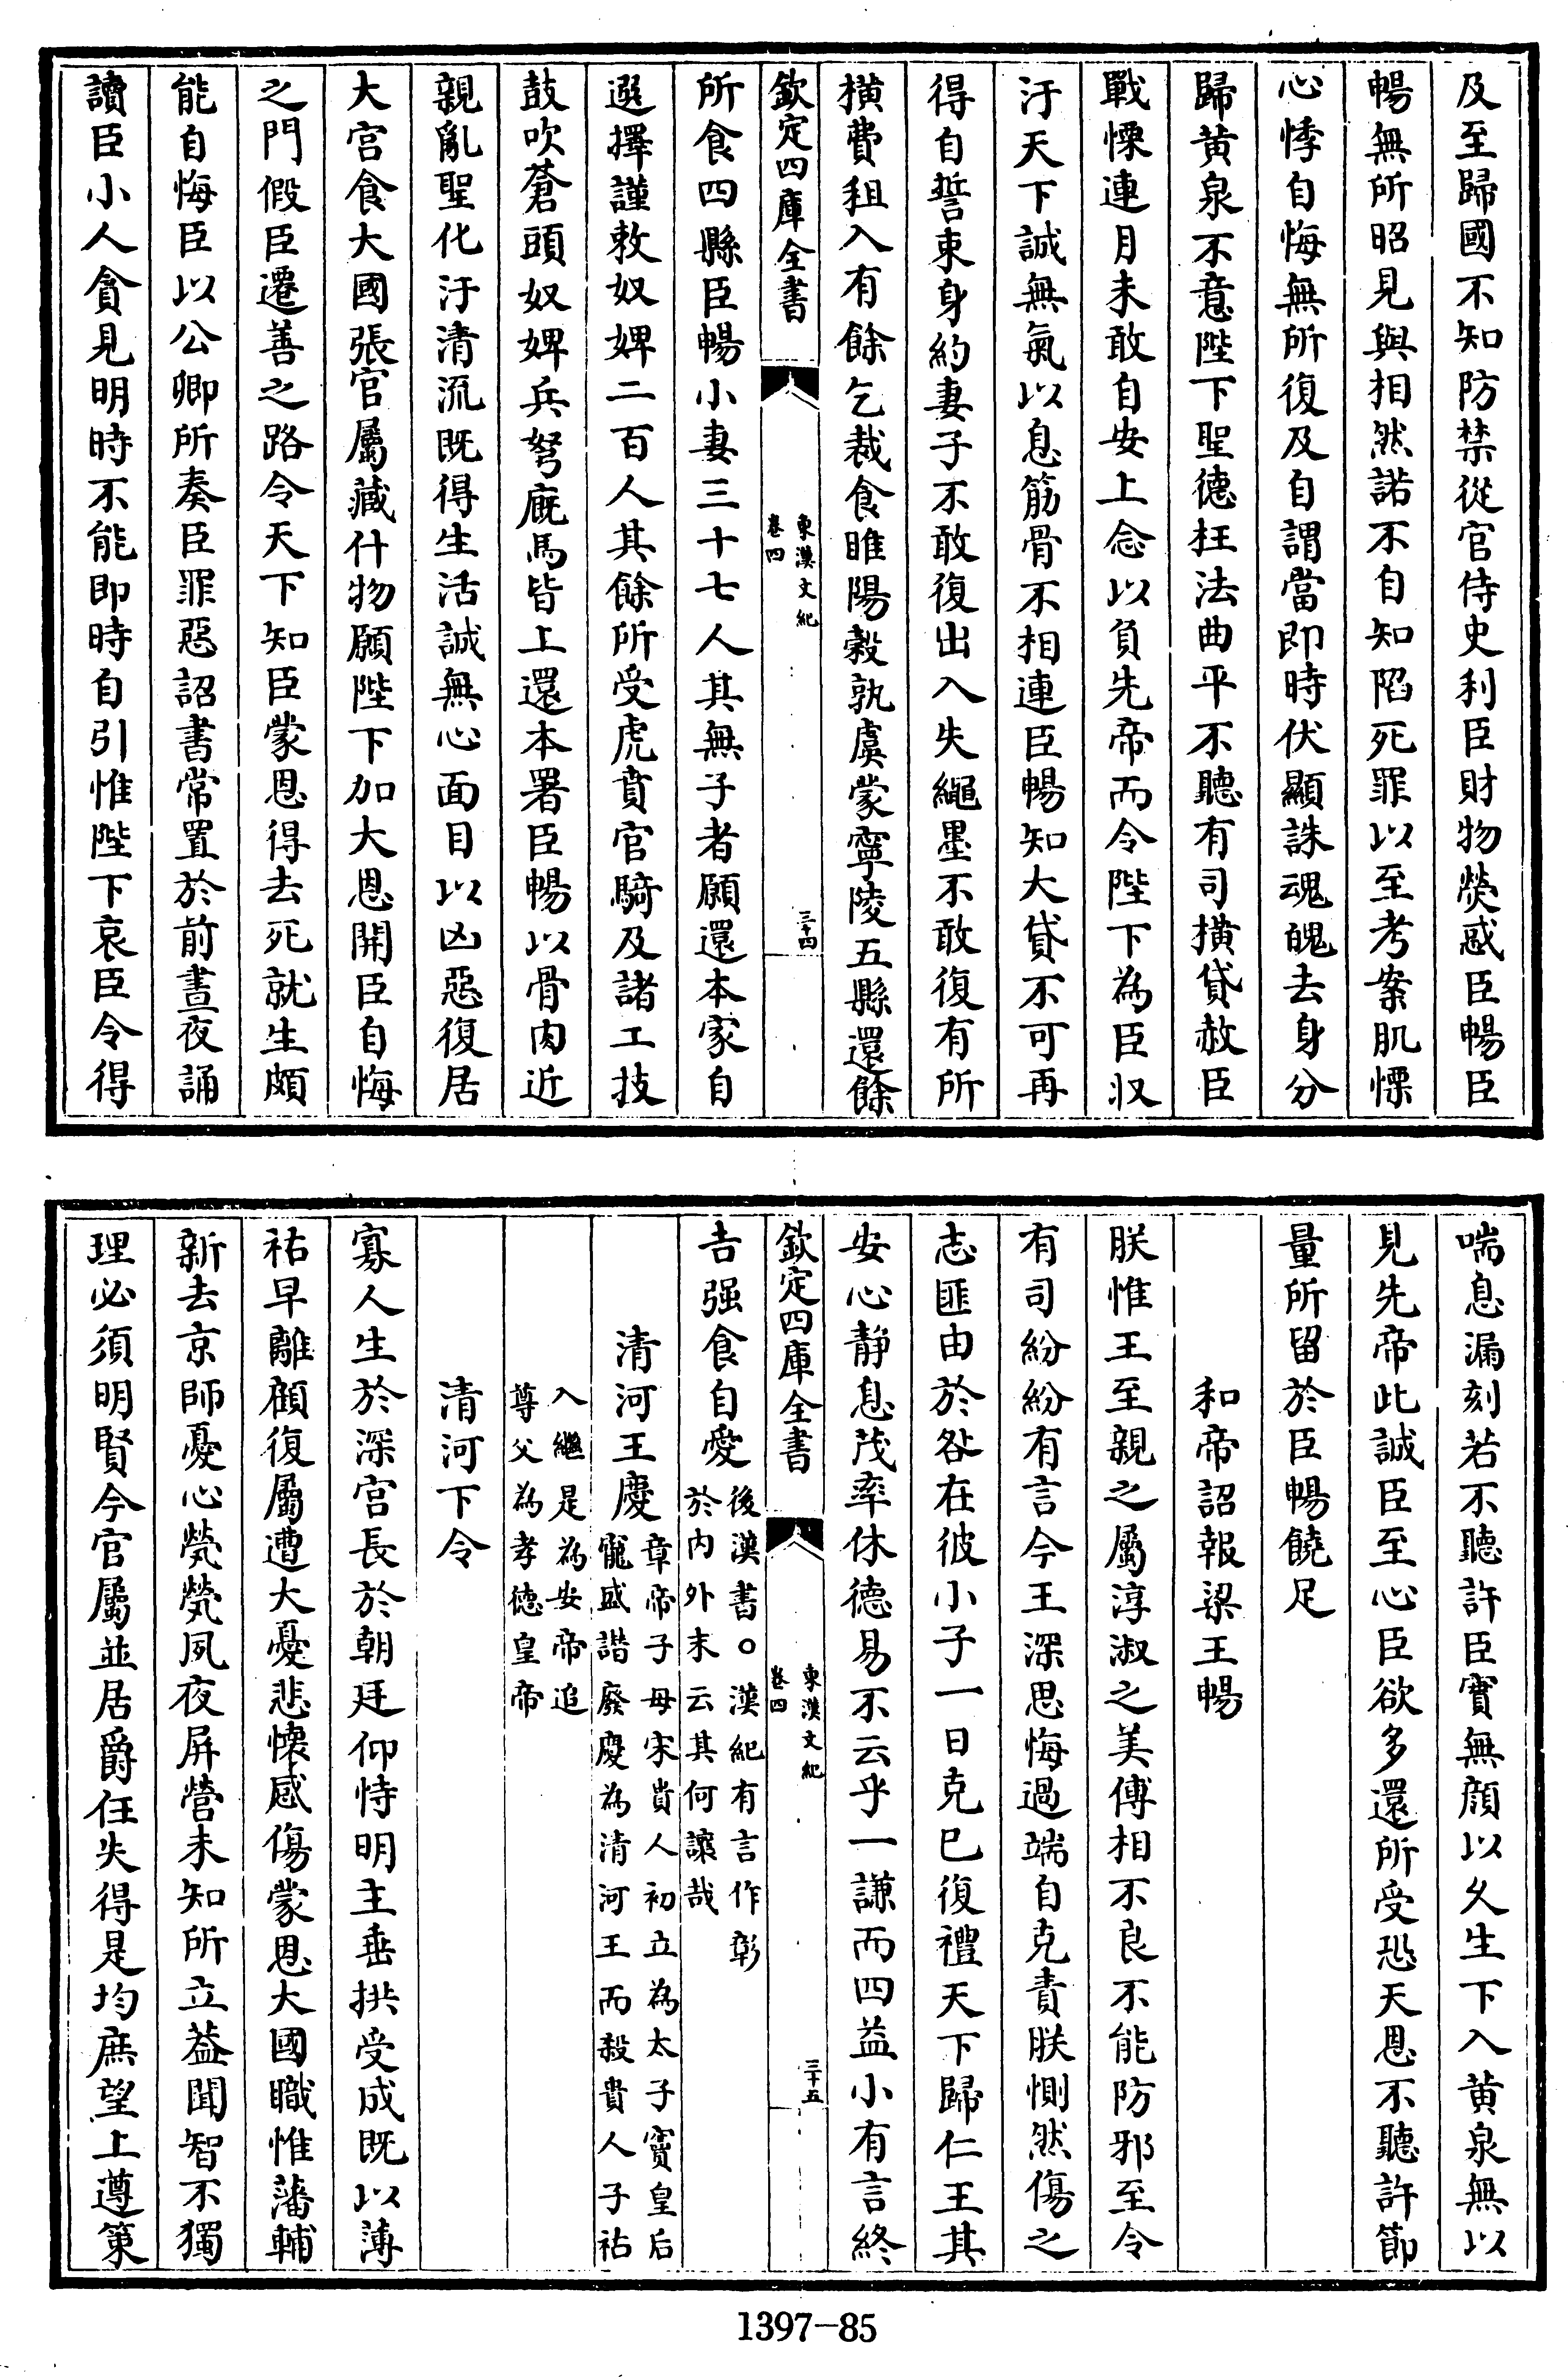 及至歸國不知防禁從官侍史利臣財物熒惑臣暢臣
暢無所昭見與相然諾不自知陷死罪以至考案肌慄
心悸自悔無所復及自謂當即時伏顯誅魂魄去身分
歸黄泉不意陛下聖德枉法曲平不聽有司横貸赦臣
戰慄連月未敢自安上念以負先帝而令陛下為臣收
汙天下誠無氣以息筋骨不相連臣暢知大貸不可再
得自誓束身約妻子不敢復出入失繩墨不敢復有所
横費租入有餘乞裁食睢陽穀孰虞蒙寧陵五縣還餘
欽定四庫全書
東漢文紀
卷四
三十四
所食四縣臣暢小妻三十七人其無子者願還本家自
選擇謹敕奴婢二百人其餘所受虎賁官騎及諸工技
鼓吹蒼頭奴婢兵弩廐馬皆上還本署臣暢以骨肉近
親亂聖化汙清流既得生活誠無心面目以凶惡復居
大宫食大國張官屬藏什物願陛下加大恩開臣自悔
之門假臣遷善之路令天下知臣蒙恩得去死就生頗
能自悔臣以公卿所奏臣罪惡詔書常置於前晝夜誦
讀臣小人貪見明時不能即時自引惟陛下哀臣令得
喘息漏刻若不聽許臣實無顔以久生下入黄泉無以
見先帝此誠臣至心臣欲多還所受恐天恩不聽許節
量所留於臣暢饒足
和帝詔報梁王暢
朕惟王至親之屬淳淑之美傅相不良不能防邪至令
有司紛紛有言今王深思悔過端自克責朕惻然傷之
志匪由於咎在彼小子一日克已復禮天下歸仁王其
安心静息茂率休德易不云乎一謙而四益小有言終
欽定四庫全書
東漢文紀
卷四
三十五
吉强食自愛後漢書○漢紀有言作彰
於内外末云其何讓哉
清河王慶章帝子母宋貴人初立為太子竇皇后
寵盛譖廢慶為清河王而殺貴人子祜
入繼是為安帝追
尊父為孝德皇帝
清河下令
寡人生於深宫長於朝廷仰恃明主垂拱受成既以薄
祜早離顧復屬遭大憂悲懷感傷蒙恩大國職惟藩輔
新去京師憂心煢煢夙夜屏營未知所立葢聞智不獨
理必須明賢今官屬並居爵任失得是均庶望上遵策
1397-85